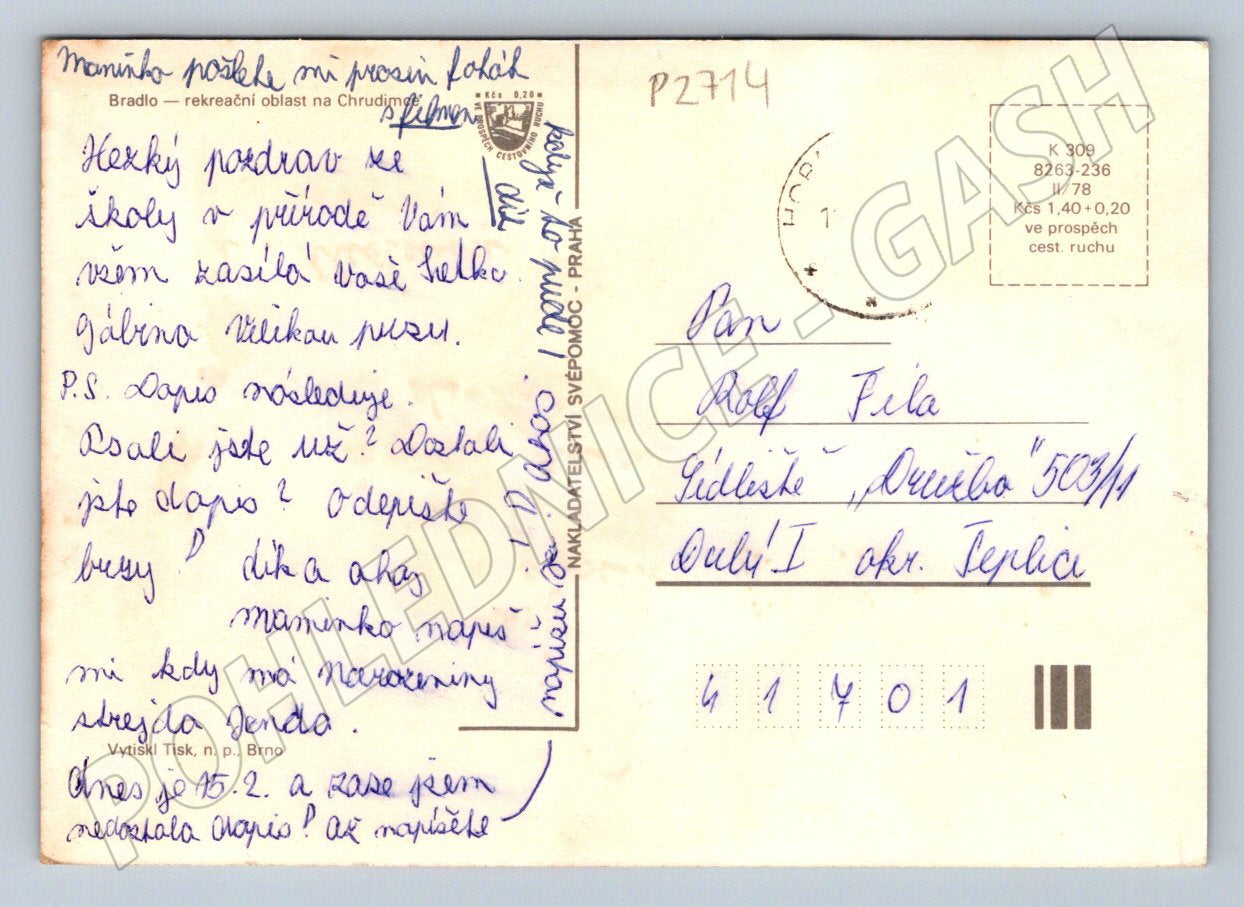 Maminko pošlete mi prosím foťák
s filmem
Bradlo — rekreační oblast na Chrudimce
Kčs 0,20
VE PROSPĚCH CESTOVNÍHO RUCHU
Hezký pozdrav ze
školy v přírodě Vám
všem zasílá vaše
Gábina Velikou pusu.
P.S. Dopis následuje.
Psali jste už? Dostali
jste dopis? Odepište
brzy! díky a ahoj
Maminko napiš
mi kdy má Narozeniny
strejda Jenda.
Vytiskl Tisk, n. p., Brno
dnes je 15.2. a zase jsem
nedostala dopis! Až napíšete
napíšu
NAKLADATELSTVÍ SVÉPOMOC - PRAHA
P2714
K 309
8263-236
II/78
Kčs 1,40+0,20
ve prospěch
cest. ruchu
Pan
Rolf Fila
Sídliště „Družba" 503/11
Dubí I okr. Teplice
41701
POHLEDNICE - GASH